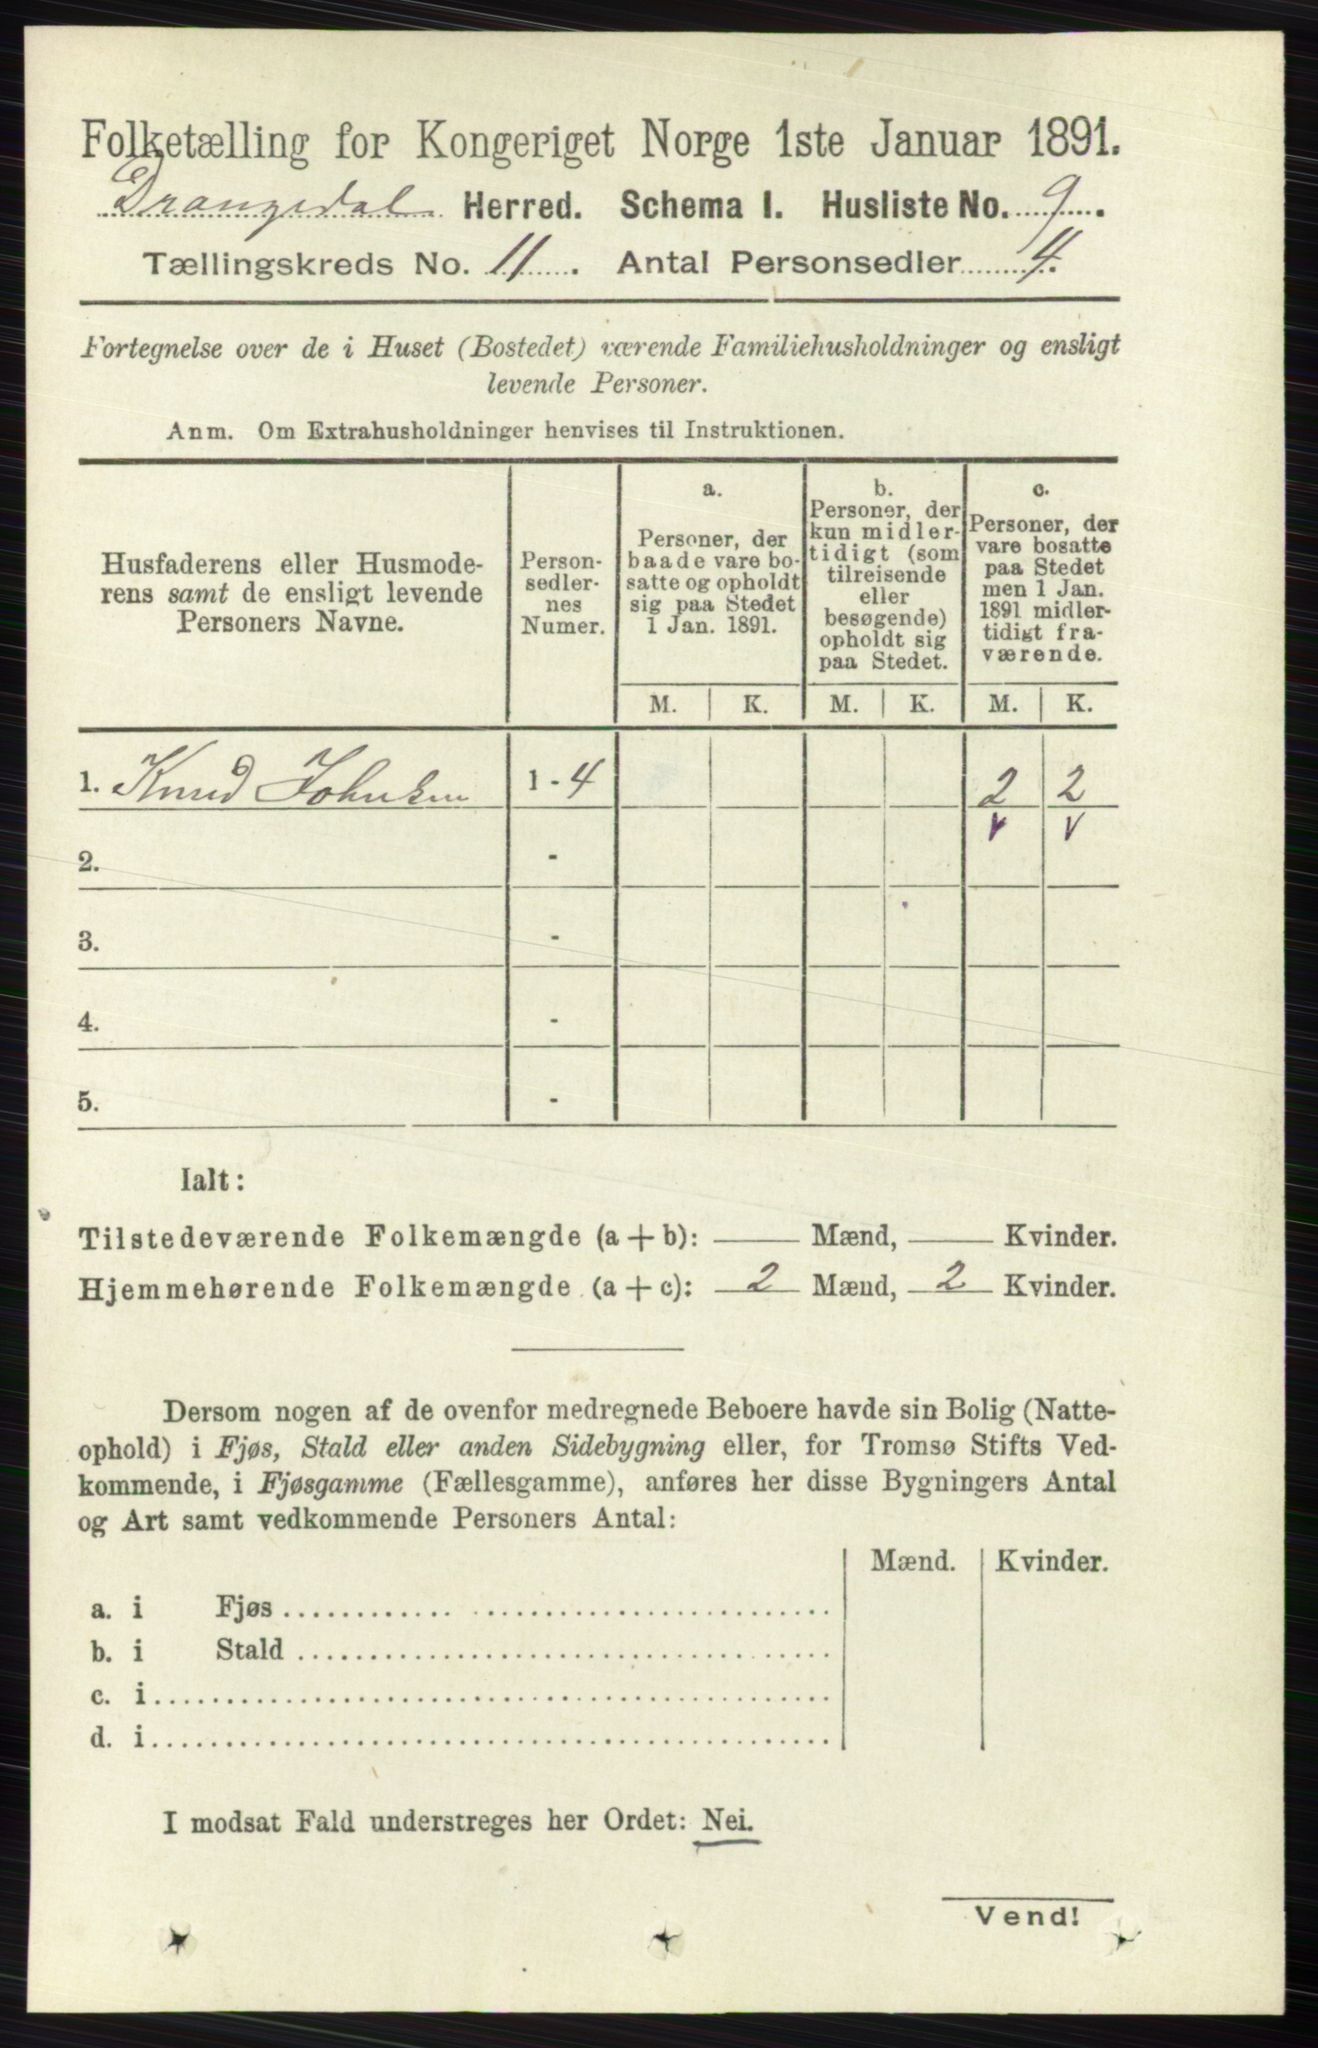 Folketælling for Kongeriget Norge 1ste Januar 1891.
Drangedal Herred. Schema I. Husliste No. 9.
Tællingskreds No. 11. Antal Personsedler 4.
Fortegnelse over de i Huset (Bostedet) værende Familiehusholdninger og ensligt
levende Personer.
Anm. Om Extrahusholdninger henvises til Instruktionen.
Husfaderens eller Husmode-
rens samt de ensligt levende
Personers Navne.
Person-
sedler-
nes
Numer.
a.
Personer, der
baade vare bo-
satte og opholdt
sig paa Stedet
1 Jan. 1891.
b.
Personer, der
kun midler-
tidigt (som
tilreisende
eller
besøgende)
opholdt sig
paa Stedet.
c.
Personer, der
vare bosatte
paa Stedet
men 1 Jan.
1891 midler-
tidigt fra-
værende.
M. K. M. K. M. K.
1. Knud Johnsen 1 - 4 2 2
v v
2. -
3. -
4. -
5. -
Ialt:
Tilstedeværende Folkemængde (a + b): — Mænd, — Kvinder.
Hjemmehørende Folkemængde (a + c): 2 Mænd, 2 Kvinder.
Dersom nogen af de ovenfor medregnede Beboere havde sin Bolig (Natte-
ophold) i Fjøs, Stald eller anden Sidebygning eller, for Tromsø Stifts Ved-
kommende, i Fjøsgamme (Fællesgamme), anføres her disse Bygningers Antal
og Art samt vedkommende Personers Antal:
Mænd. Kvinder.
a. i Fjøs
b. i Stald
c. i
d. i
I modsat Fald understreges her Ordet: Nei.
Vend!